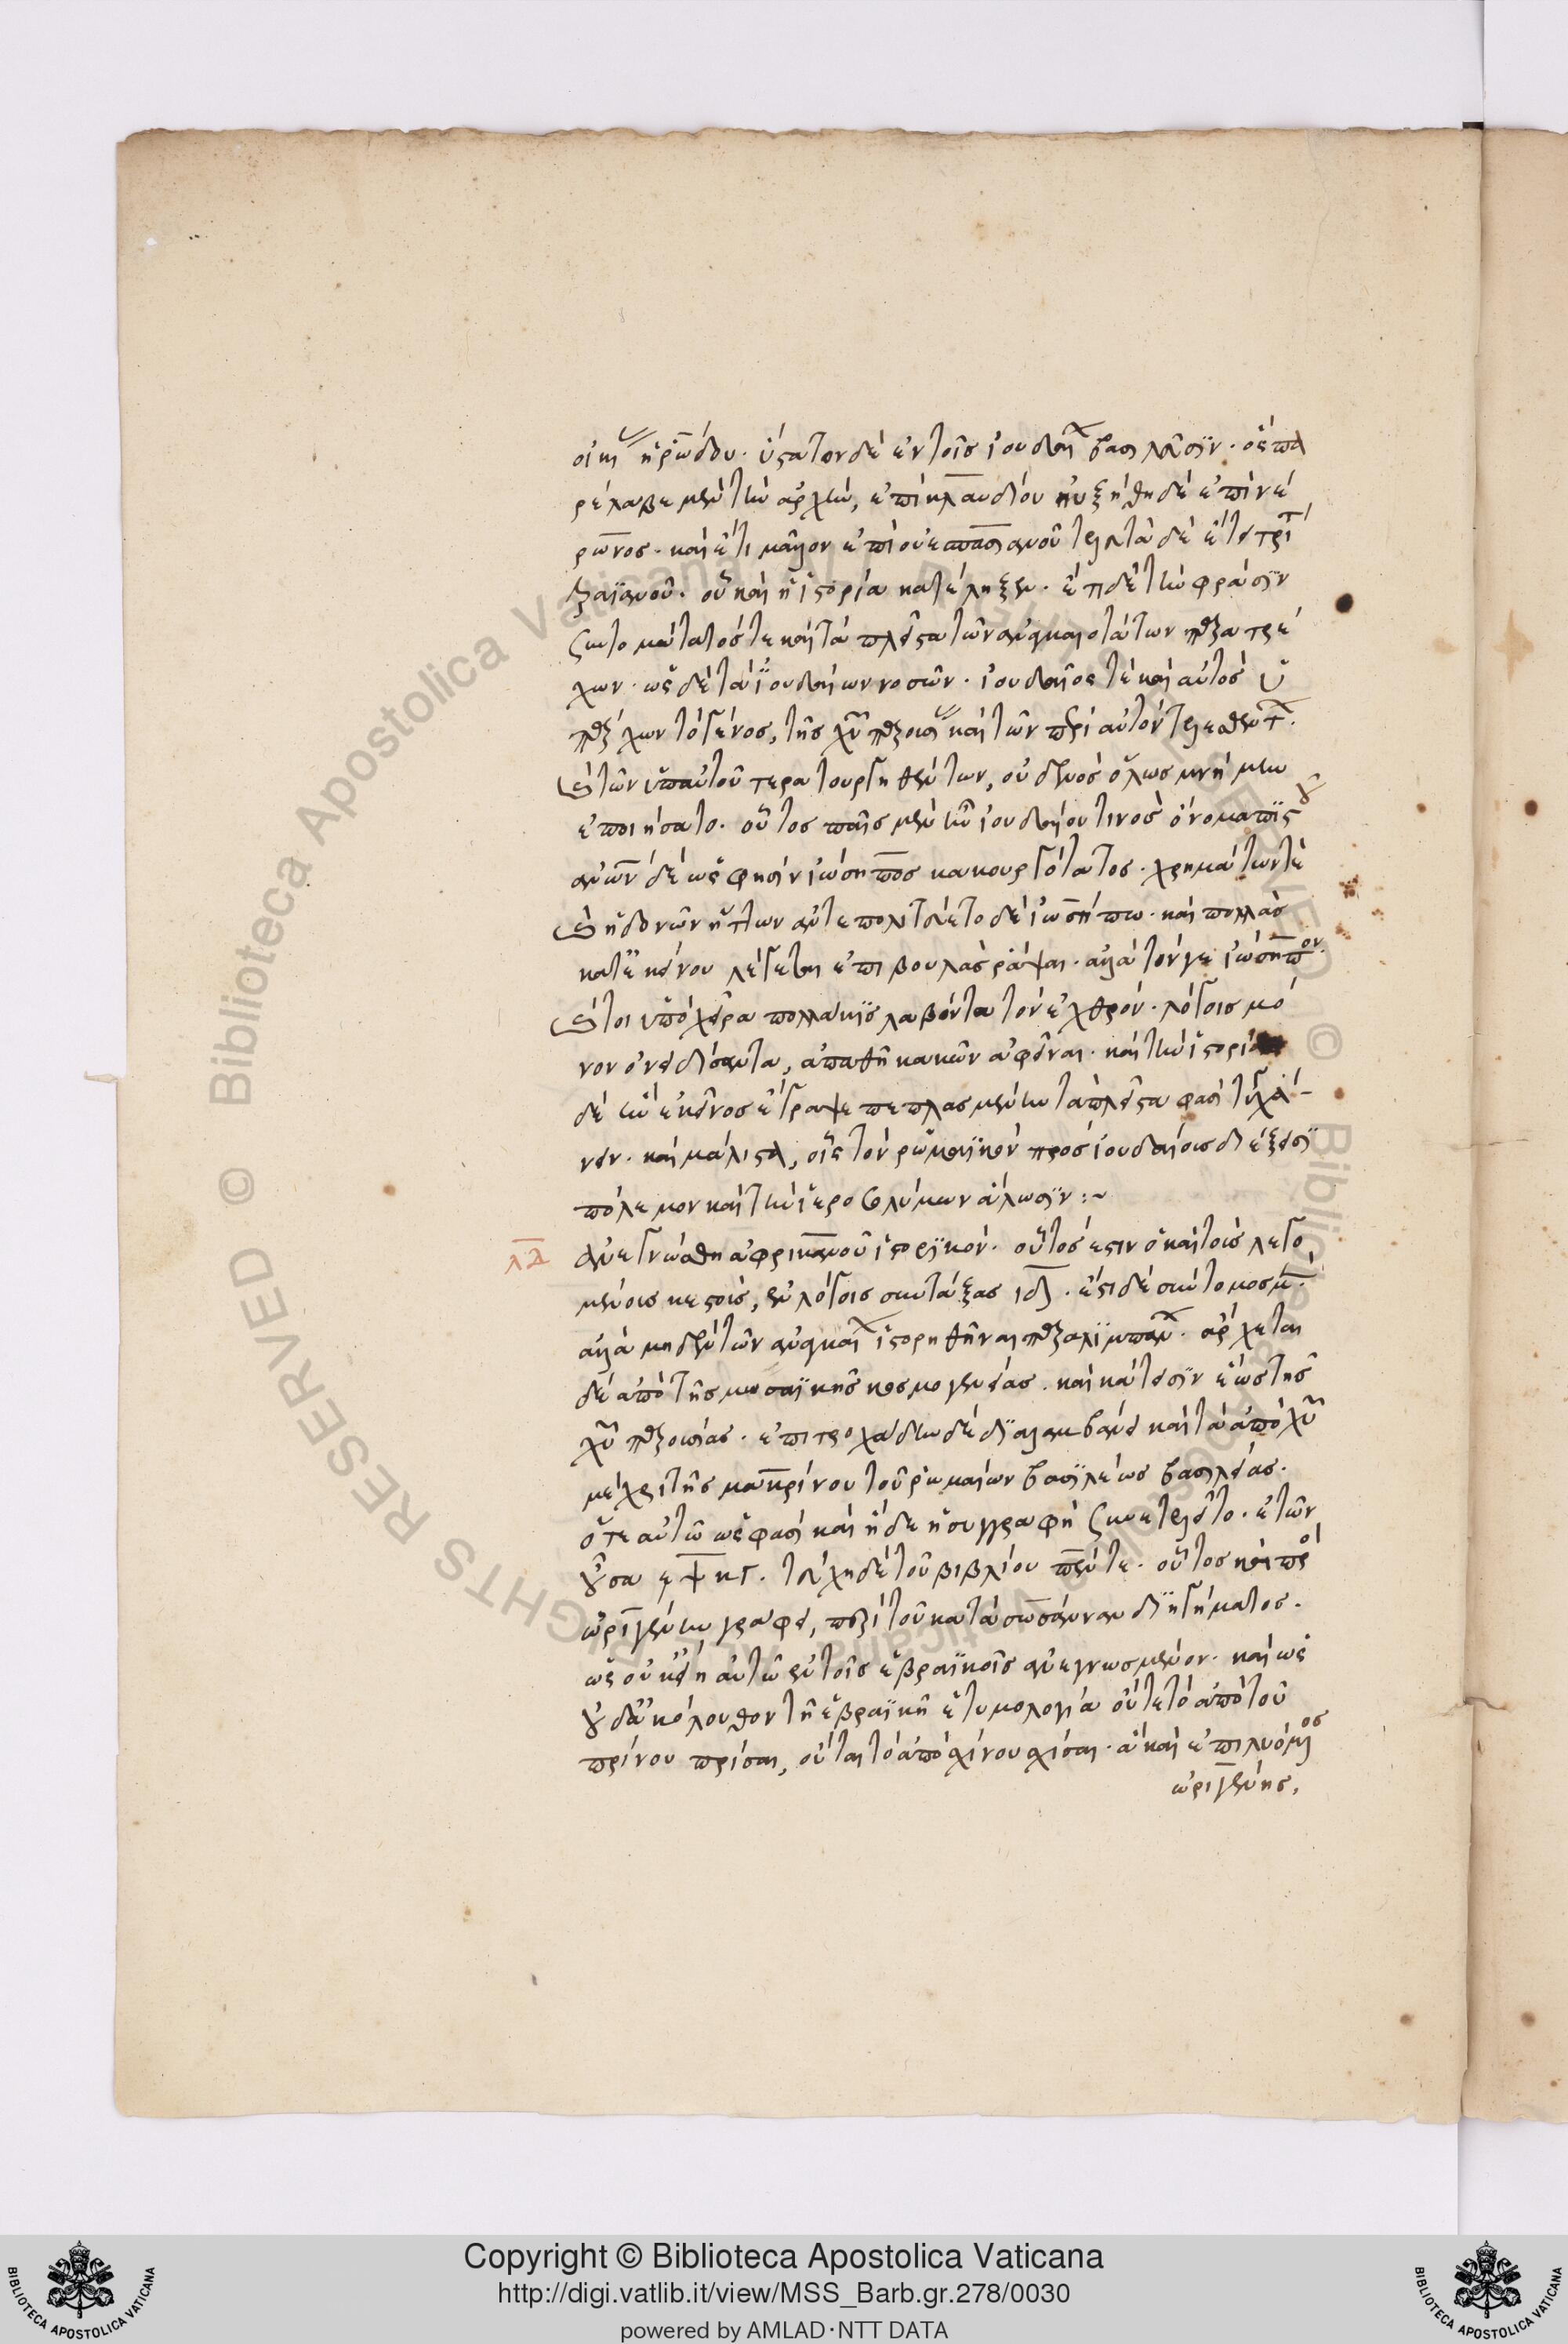 οἰκίας ἡρώδου. ὕστατον δὲ ἐν τοῖς ἰουδαίων βασιλεῦσιν. ὃς πα
ρέλαβε μὲν τὴν ἀρχὴν, ἐπὶ κλαυδίου ηὐξήθη δὲ ἐπὶ νέ
ρωνος. καὶ ἔτι μᾶλλον ἐπὶ οὐεσπασιανοῦ τελευτᾶ δὲ ἔτει τρί
τραϊανοῦ. οὗ καὶ ἡ ἱστορία κατέληξεν. ἔστι δὲ τὴν φράσιν
συντομώτατός τε καὶ τὰ πλεῖστα τῶν ἀναγκαιοτάτων παρατρέ
χων. ὡς δὲ τὰ ἰουδαίων νοσῶν. ἰουδαῖος τὲ καὶ αὐτὸς ὑ
πάρχων τὸ γένος, τῆς χυ παρουσίας καὶ τῶν περὶ αὐτὸν τελεσθέντων.
καὶ τῶν ὑπ αὐτοῦ τερατουργηθέντων, οὐδενὸς ὅλως μνήμην
ἐποιήσατο. οὗτος παῖς μὲν ἦν ἰουδαίου τινος ὄνομα πιστοῦ
ἀνὼν δὲ ὥς φησιν ἰώσηπος κακουργότατος. χρημάτων τὲ
καὶ ἡδονῶν ἥττων ἀντεπολιτεύετο δὲ ἰωσήπω. καὶ πολλὰς
κατ ἐκείνου λέγεται ἐπιβουλὰς ῥάψαι. ἀλλὰ τόν γε ἰώσηπον.
καί τοι ὑπὸ χεῖρα πολλάκις λαβόντα τὸν ἐχθρόν. λόγοις μό
νον ὀνειδίσαντα, ἀπαθῆ κακῶν ἀφεῖναι. καὶ τὴν ἱστορίαν
δὲ ἣν ἐκεῖνος ἔγραψε πεπλασμένην τὰ πλεῖστα φασὶ τυγχά-
νειν. καὶ μάλιστα, οἷς τὸν ῥωμαϊκὸν πρὸς ἰουδαίοις διέξεισι
πόλεμον καὶ τὴν ἱεροσολύμων ἅλωσιν:~
λδ ἀνεγνώσθη ἀφρικανοῦ ἱστορικόν. οὗτός ἐστιν ὁ καὶ τοὺς λεγο
μένοις κεστοὺς, ἐν λόγοις συντάξας ιδ. ἔστι δὲ σύντομος μ.
ἀλλὰ μηδὲν τῶν ἀναγκαίων ἱστορηθῆναι παραλιμπάνων. ἄρχεται
δὲ ἀπὸ τῆς μωσαϊκῆς κοσμογενείας. καὶ κάτεισιν ἕως τῆς
χυ παρουσίας. ἐπιτροχάδην δὲ διαλαμβάνει καὶ τὰ ἀπὸ χυ
μέχρι τῆς μακρίνου τοῦ ῥωμαίων βασιλέως βασιλείας.
ὅτε αὐτῶ ὥς φασὶ καὶ ἥδε ἡ συγγραφὴ συνετελεῖτο. ἐτῶν
οὖσα ͵εψκγ. τεύχη δὲ τοῦ βιβλίου πέντε. οὗτος καὶ πρὸς
ὠριγένην γράφει, περὶ τοῦ κατὰ σωσάνναν διηγήματος.
ὡς οὐκ εἴη αὐτῶ ἐν τοῖς ἑβραϊκοῖς ἀνεγνωσμένον. καὶ ὡς
οὐδ ἀκόλουθον τῆ ἑβραϊκῆ ἐτυμολογία οὔτε τὸ ἀπὸ τοῦ
πρίνου πρίσαι, οὔται τὸ ἀπὸ σχίνου σχίσαι. ἃ καὶ ἐπιλυόμενος
ὠριγένης,
Copyright © Biblioteca Apostolica Vaticana
http://digi.vatlib.it/view/MSS_Barb.gr.278/0030
powered by AMLAD·NTT DATA